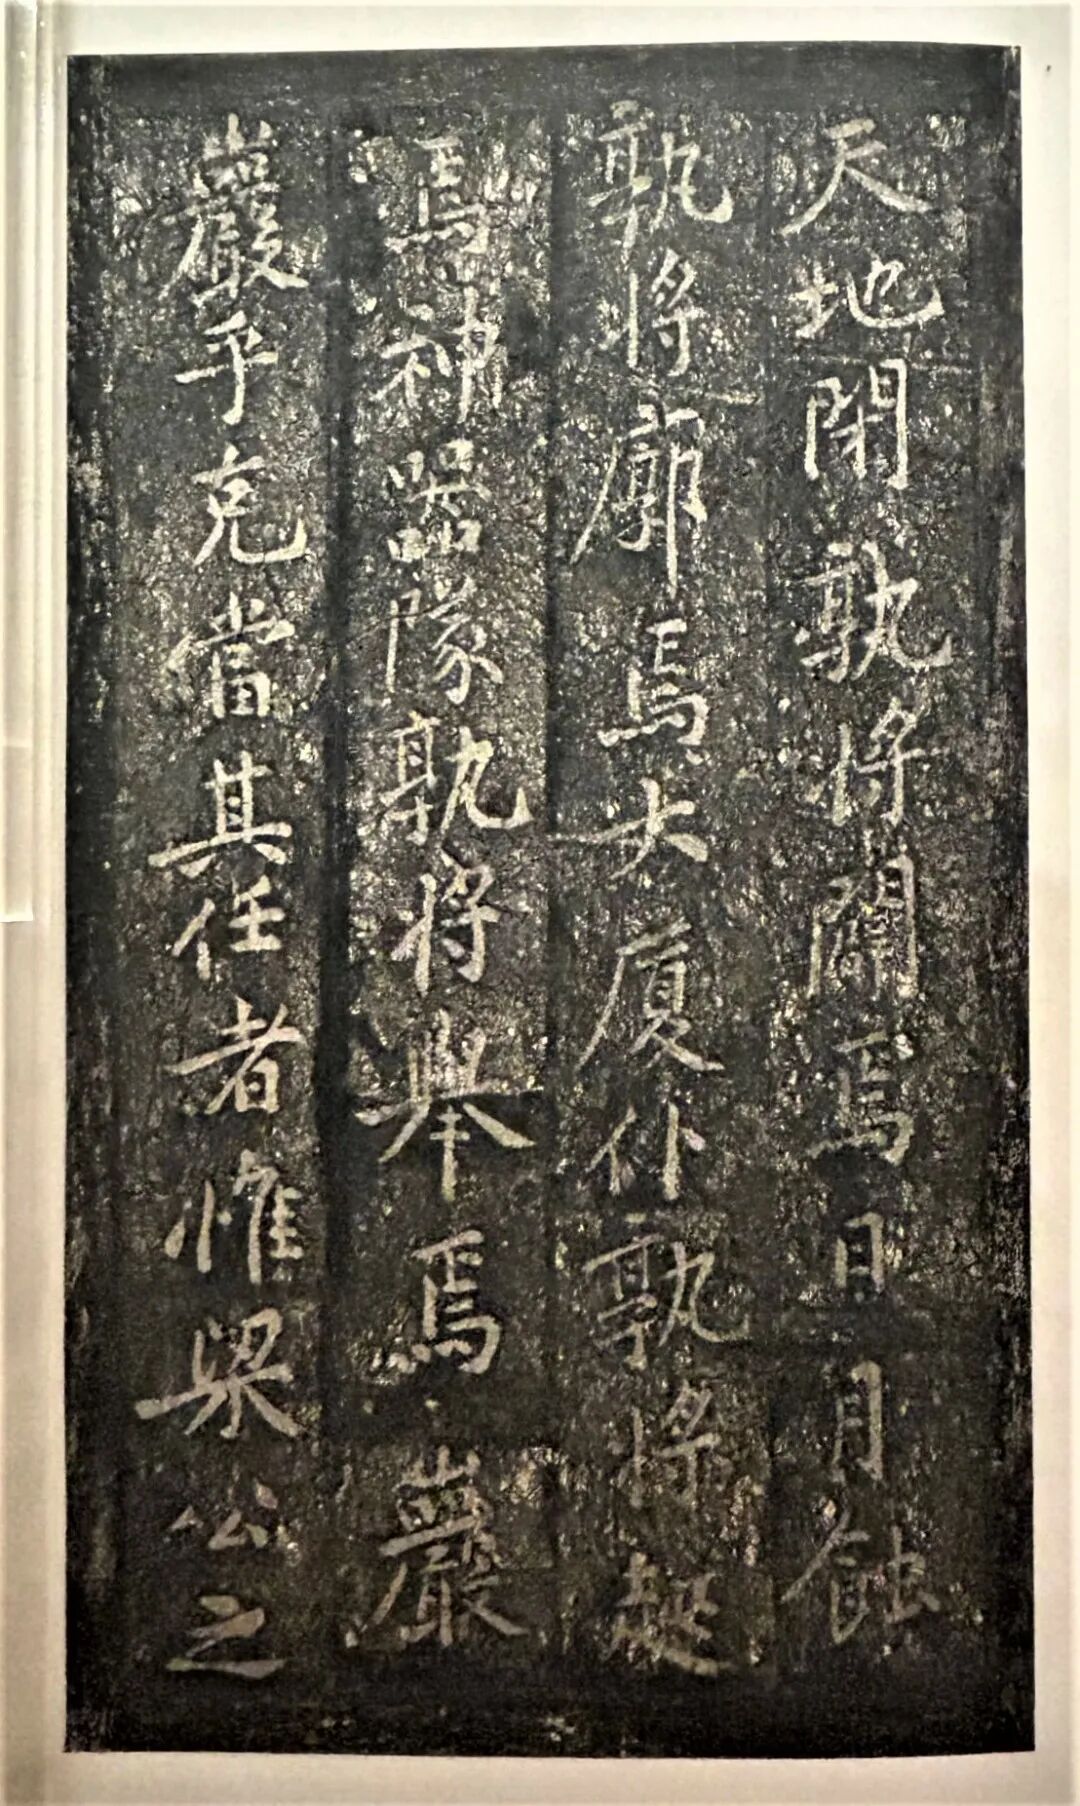 天地閉孰將闢焉日月蝕
孰將廓焉大廈仆孰將起
焉神器隊孰將舉焉巖
巖乎克當其任者惟梁公之